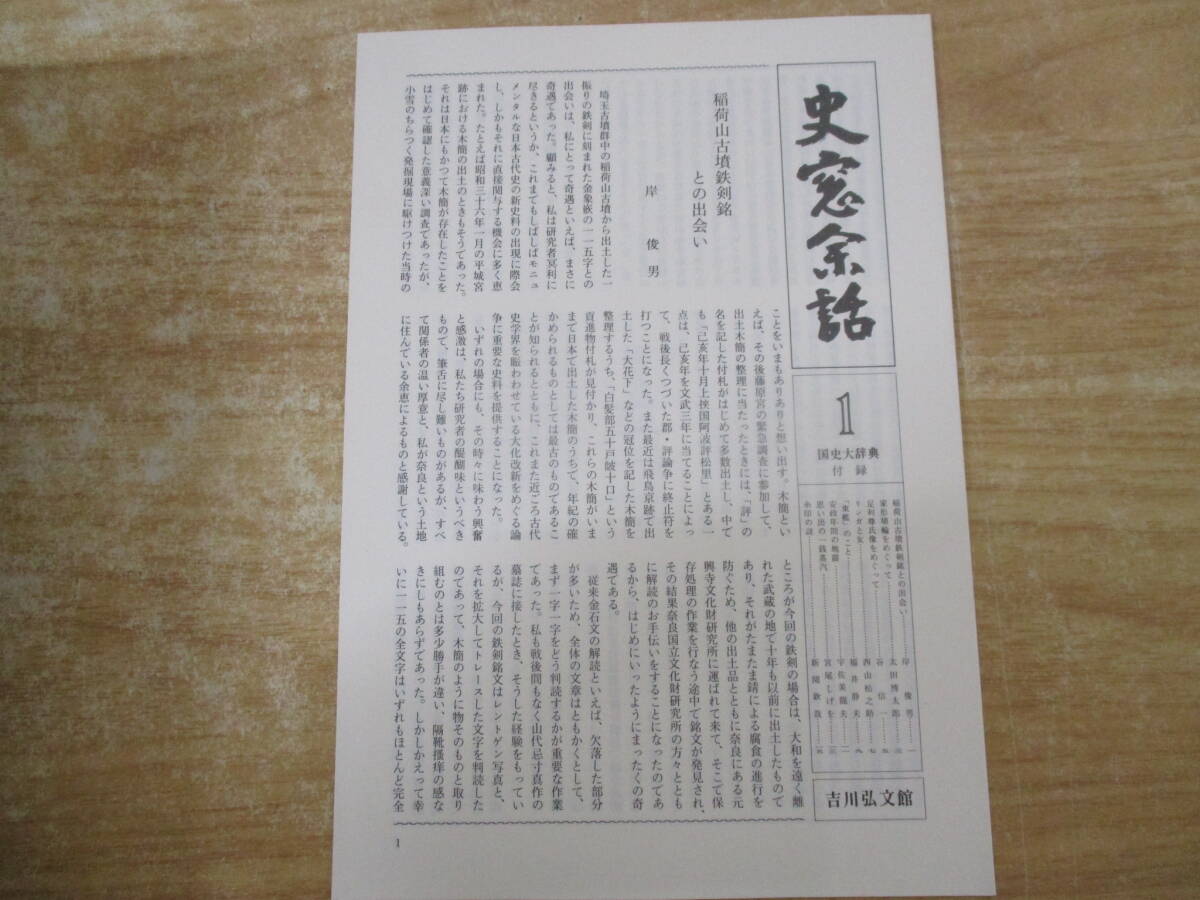 史窓余話
1
国史大辞典
付録
稲荷山古墳鉄剣銘との出会い……岸俊男…一
家形埴輪をめぐって……太田博太郎…三
足利尊氏像をめぐって……谷信一…五
リンガと女……西山松之助…七
「東艦」のこと……福井静夫…九
安政年間の地震……宇佐美龍夫…二
思い出の一銭蒸汽……宮尾しげを…三
糸印の説……新関欽哉…五
吉川弘文館
稲荷山古墳鉄剣銘
との出会い
岸俊男
埼玉古墳群中の稲荷山古墳から出土した一
振りの鉄剣に刻まれた金象嵌の一一五字との
出会いは、私にとって奇遇といえば、まさに
奇遇であった。顧みると、私は研究者冥利に
尽きるというか、これまでもしばしばモニュ
メンタルな日本古代史の新史料の出現に際会
し、しかもそれに直接関与する機会に多く恵
まれた。たとえば昭和三十六年一月の平城宮
跡における木簡の出土のときもそうであった。
それは日本にもかつて木簡が存在したことを
はじめて確認した意義深い調査であったが、
小雪のちらつく発掘現場に駆けつけた当時の
ことをいまもありありと想い出す。木簡とい
えば、その後藤原宮の緊急調査に参加して、
出土木簡の整理に当たったときには、「評」の
名を記した付札がはじめて多数出土し、中で
も「己亥年十月上挟国阿波評松里」とある一
点は、己亥年を文武三年に当てることによっ
て、戦後長くつづいた郡・評論争に終止符を
打つことになった。また最近は飛鳥京跡で出
土した「大花下」などの冠位を記した木簡を
整理するうち、「白髪部五十戸皷十口」という
貢進物付札が見付かり、これらの木簡がいま
まで日本で出土した木簡のうちで、年紀の確
かめられるものとしては最古のものであるこ
とが知られるとともに、これまた近ごろ古代
史学界を賑わわせている大化改新をめぐる論
争に重要な史料を提供することになった。
いずれの場合にも、その時々に味わう興奮
と感激は、私たち研究者の醍醐味というべき
もので、筆舌に尽し難いものがあるが、すべ
て関係者の温い厚意と、私が奈良という土地
に住んでいる余恵によるものと感謝している。
ところが今回の鉄剣の場合は、大和を遠く離
れた武蔵の地で十年も以前に出土したもので
あり、それがたまたま錆による腐食の進行を
防ぐため、他の出土品とともに奈良にある元
興寺文化財研究所に運ばれて来て、そこで保
存処理の作業を行なう途中で銘文が発見され、
その結果奈良国立文化財研究所の方々ととも
に解読のお手伝いをすることになったのであ
るから、はじめにいったようにまったくの奇
遇である。
従来金石文の解読といえば、欠落した部分
が多いため、全体の文章はともかくとして、
まず一字一字をどう判読するかが重要な作業
であった。私も戦後間もなく山代忌寸真作の
墓誌に接したとき、そうした経験をもってい
るが、今回の鉄剣銘文はレントゲン写真と、
それを拡大してトレースした文字を判読した
のであって、木簡のように物そのものと取り
組むのとは多少勝手が違い、隔靴搔痒の感な
きにしもあらずであった。しかしかえって幸
いに一一五の全文字はいずれもほとんど完全
1